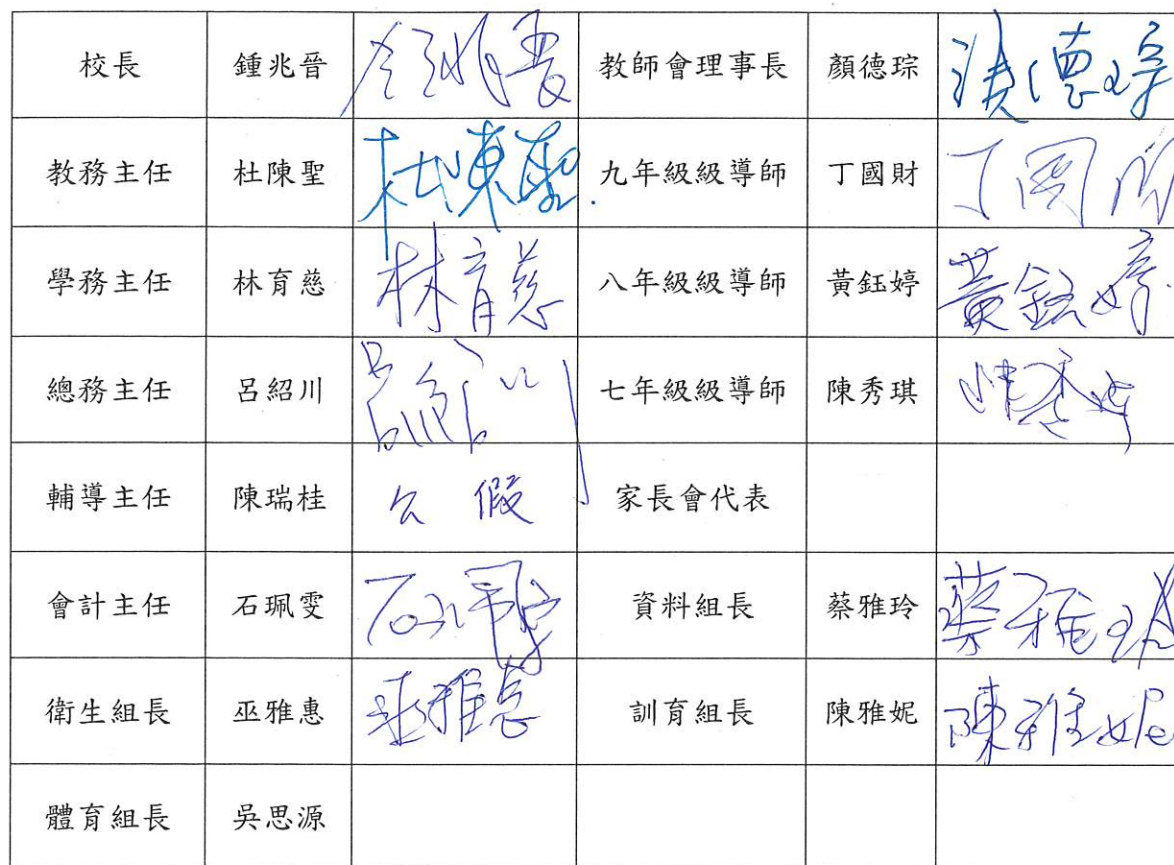 校長 鍾兆晉 教師會理事長 顏德琮
教務主任 杜陳聖 杜陳聖 九年級級導師 丁國財 丁國財
學務主任 林育慈 林育慈 八年級級導師 黃鈺婷 黃鈺婷
總務主任 呂紹川 呂紹川 七年級級導師 陳秀琪
輔導主任 陳瑞桂 公假 家長會代表
會計主任 石珮雯 石珮雯 資料組長 蔡雅玲 蔡雅玲
衛生組長 巫雅惠 巫雅惠 訓育組長 陳雅妮 陳雅妮
體育組長 吳思源